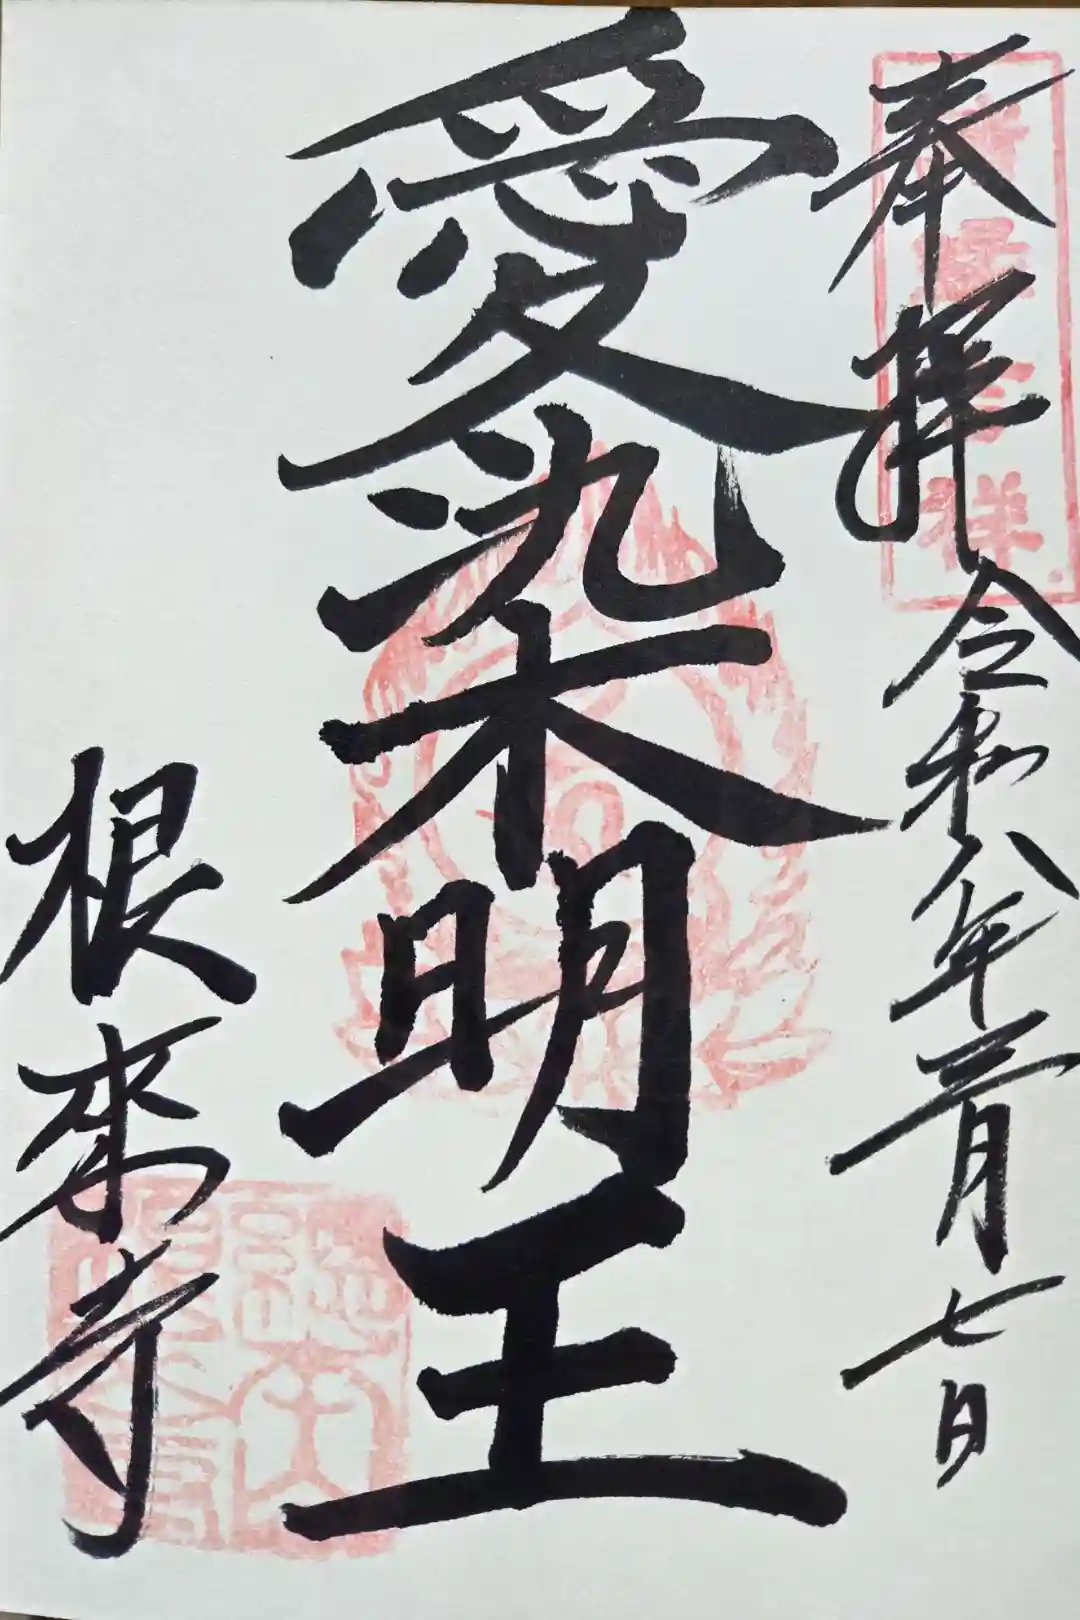 奉拝
令和八年二月七日
愛染明王
根来寺